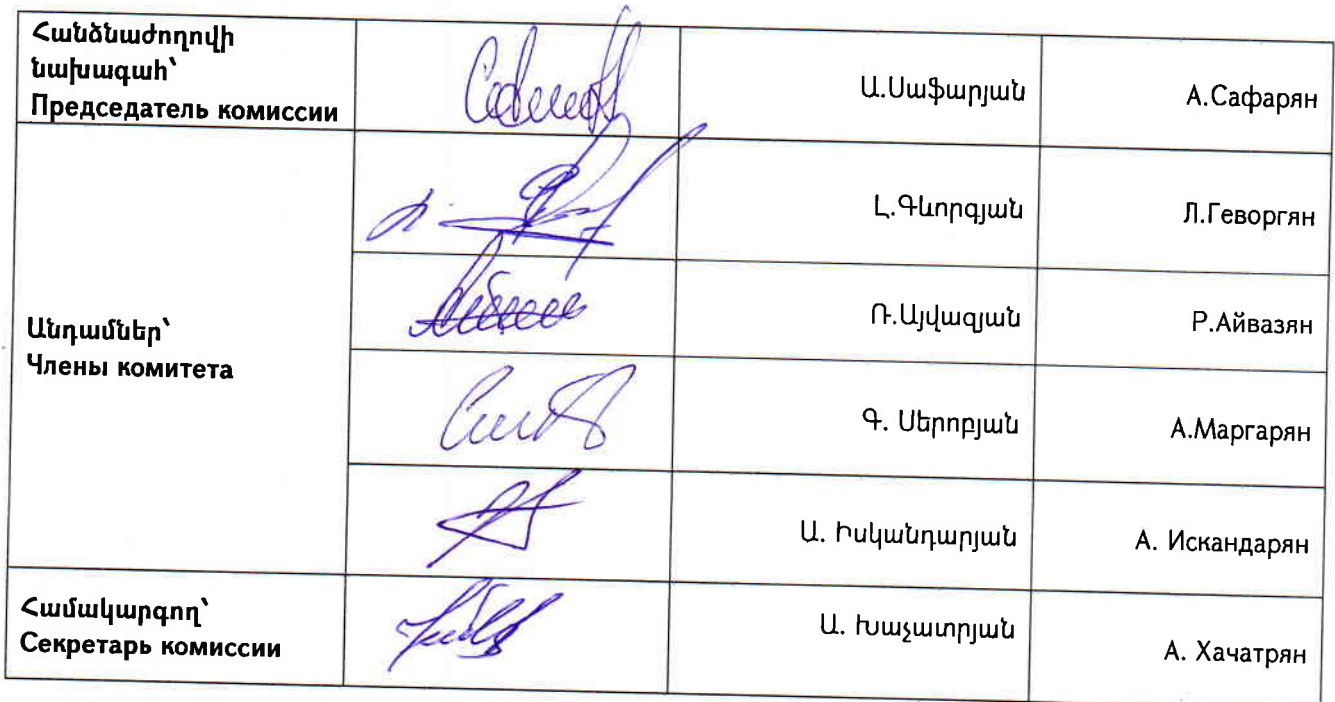 Հանձնաժողովի
նախագահ՝
Председатель комиссии
Ա.Սաֆարյան
А.Сафарян
Լ.Գևորգյան
Л.Геворгян
Անդամներ՝
Члены комитета
Ռ.Այվազյան
Р.Айвазян
Գ. Սերոբյան
А.Маргарян
Ա. Իսկանդարյան
А. Искандарян
Համակարգող՝
Секретарь комиссии
Ա. Խաչատրյան
А. Хачатрян